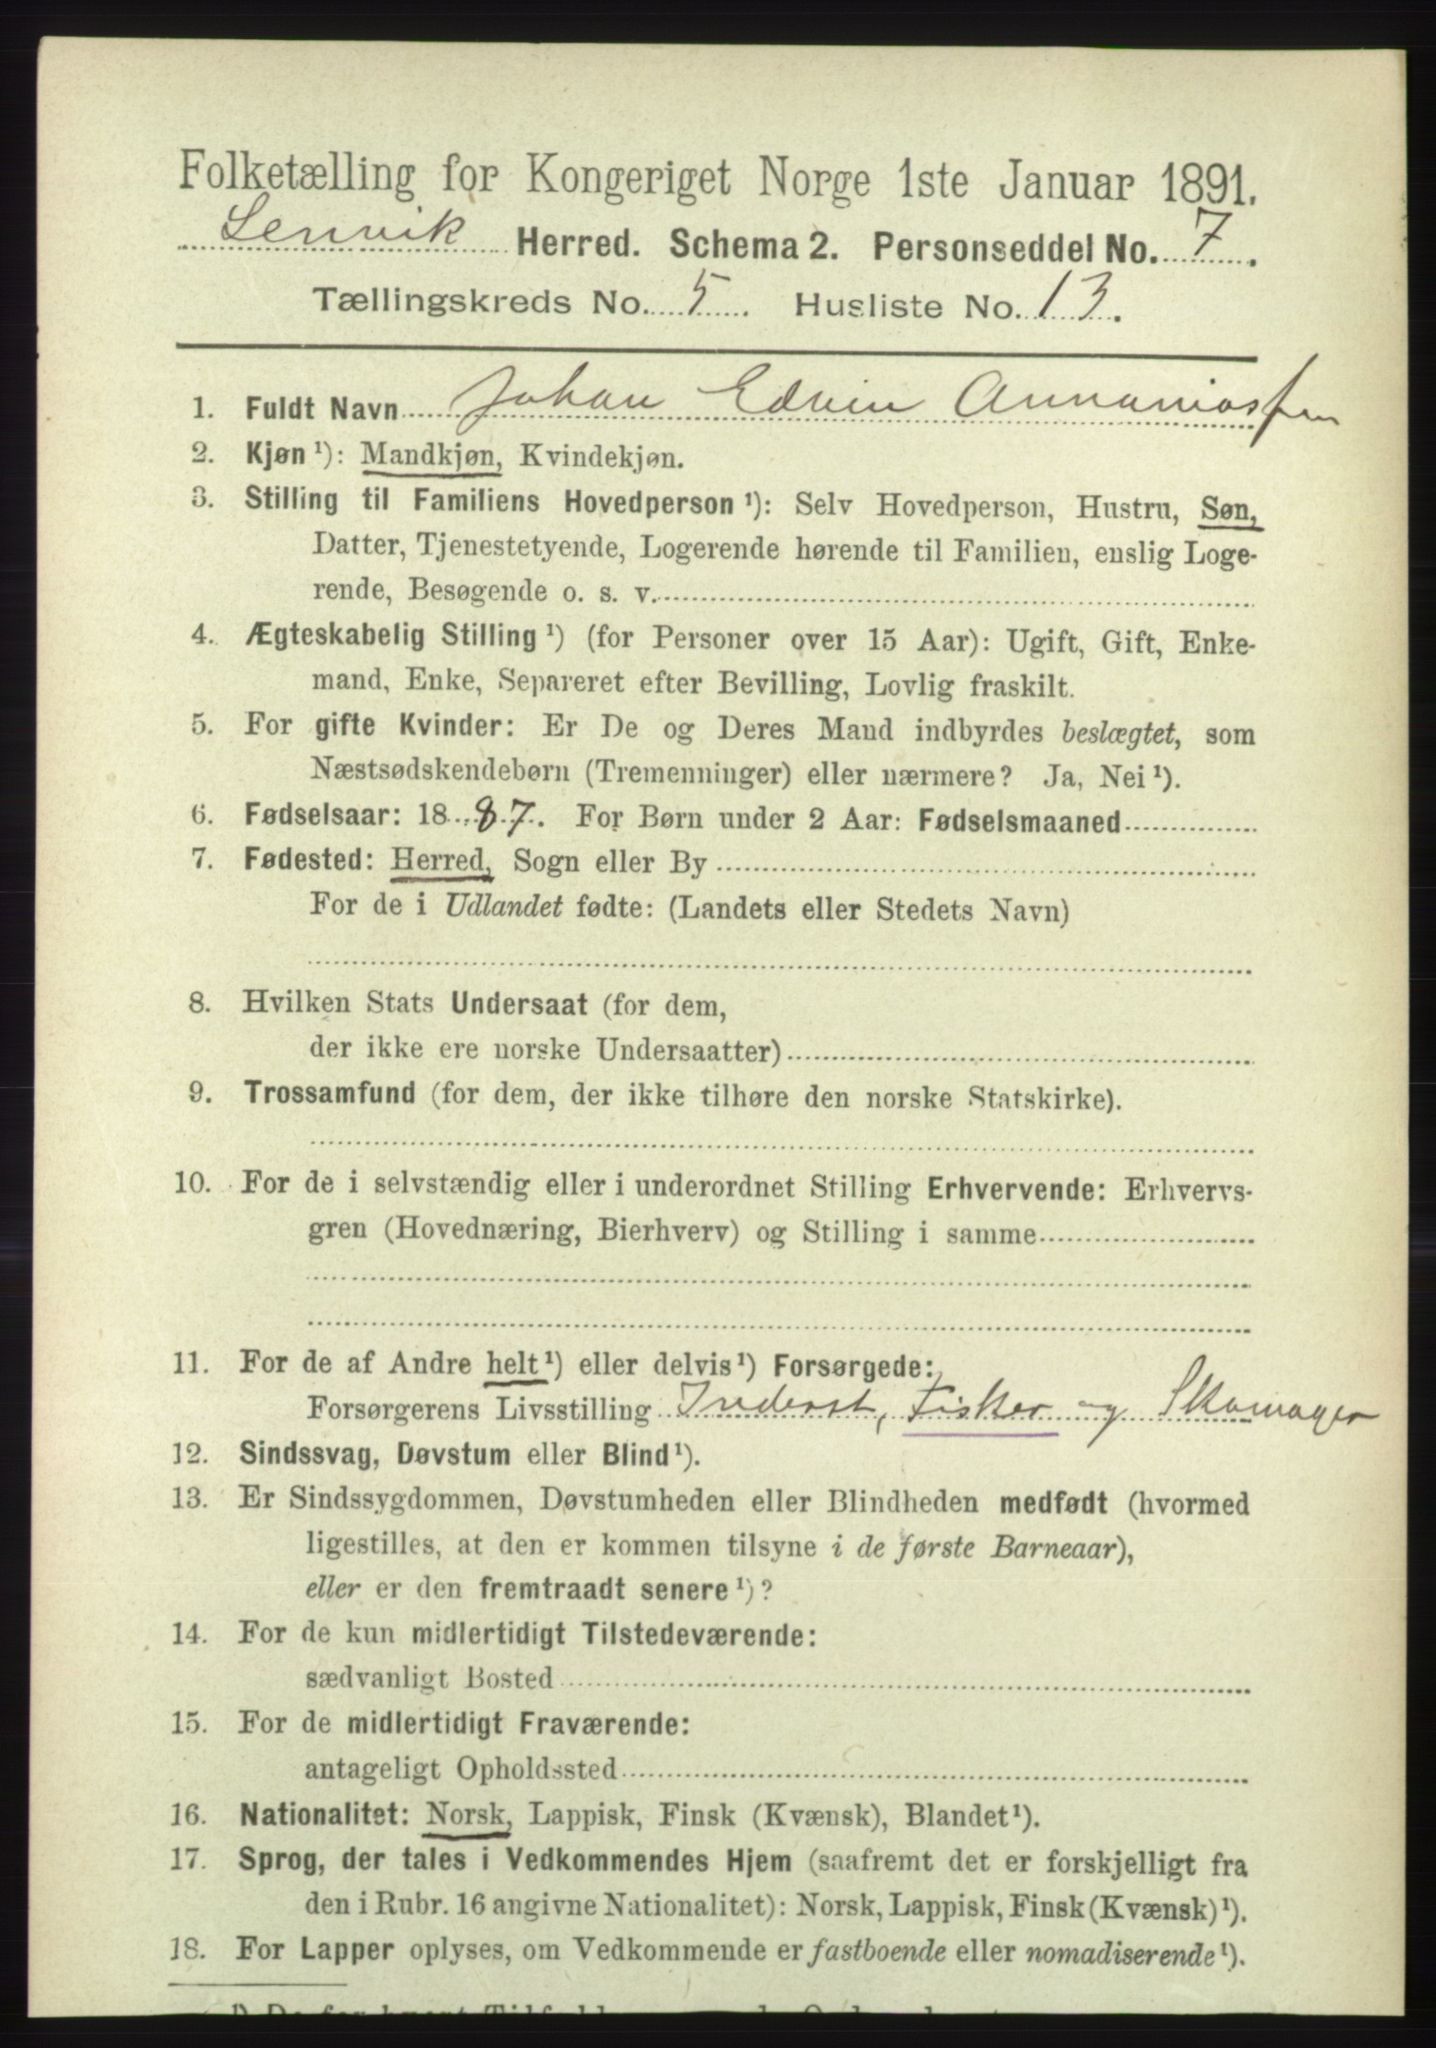 Folketælling for Kongeriget Norge 1ste Januar 1891.
Lenvik Herred. Schema 2. Personseddel No. 7.
Tællingskreds No. 5. Husliste No. 13.
1. Fuldt Navn Johan Edvin Annaniassen
2. Kjøn ¹): Mandkjøn, Kvindekjøn.
3. Stilling til Familiens Hovedperson ¹): Selv Hovedperson, Hustru, Søn,
Datter, Tjenestetyende, Logerende hørende til Familien, enslig Loge-
rende, Besøgende o. s. v.
4. Ægteskabelig Stilling ¹) (for Personer over 15 Aar): Ugift, Gift, Enke-
mand, Enke, Separeret efter Bevilling, Lovlig fraskilt.
5. For gifte Kvinder: Er De og Deres Mand indbyrdes beslægtet, som
Næstsødskendebørn (Tremenninger) eller nærmere? Ja, Nei ¹).
6. Fødselsaar: 1887. For Børn under 2 Aar: Fødselsmaaned
7. Fødested: Herred, Sogn eller By
For de i Udlandet fødte: (Landets eller Stedets Navn)
8. Hvilken Stats Undersaat (for dem,
der ikke ere norske Undersaatter)
9. Trossamfund (for dem, der ikke tilhøre den norske Statskirke).
10. For de i selvstændig eller i underordnet Stilling Erhvervende: Erhvervs-
gren (Hovednæring, Bierhverv) og Stilling i samme
11. For de af Andre helt ¹) eller delvis ¹) Forsørgede:
Forsørgerens Livsstilling Inderst, Fisker og Skomager
12. Sindssvag, Døvstum eller Blind ¹).
13. Er Sindssygdommen, Døvstumheden eller Blindheden medfødt (hvormed
ligestilles, at den er kommen tilsyne i de første Barneaar),
eller er den fremtraadt senere ¹)?
14. For de kun midlertidigt Tilstedeværende:
sædvanligt Bosted
15. For de midlertidigt Fraværende:
antageligt Opholdssted
16. Nationalitet: Norsk, Lappisk, Finsk (Kvænsk), Blandet ¹).
17. Sprog, der tales i Vedkommendes Hjem (saafremt det er forskjelligt fra
den i Rubr. 16 angivne Nationalitet): Norsk, Lappisk, Finsk (Kvænsk) ¹).
18. For Lapper oplyses, om Vedkommende er fastboende eller nomadiserende ¹).